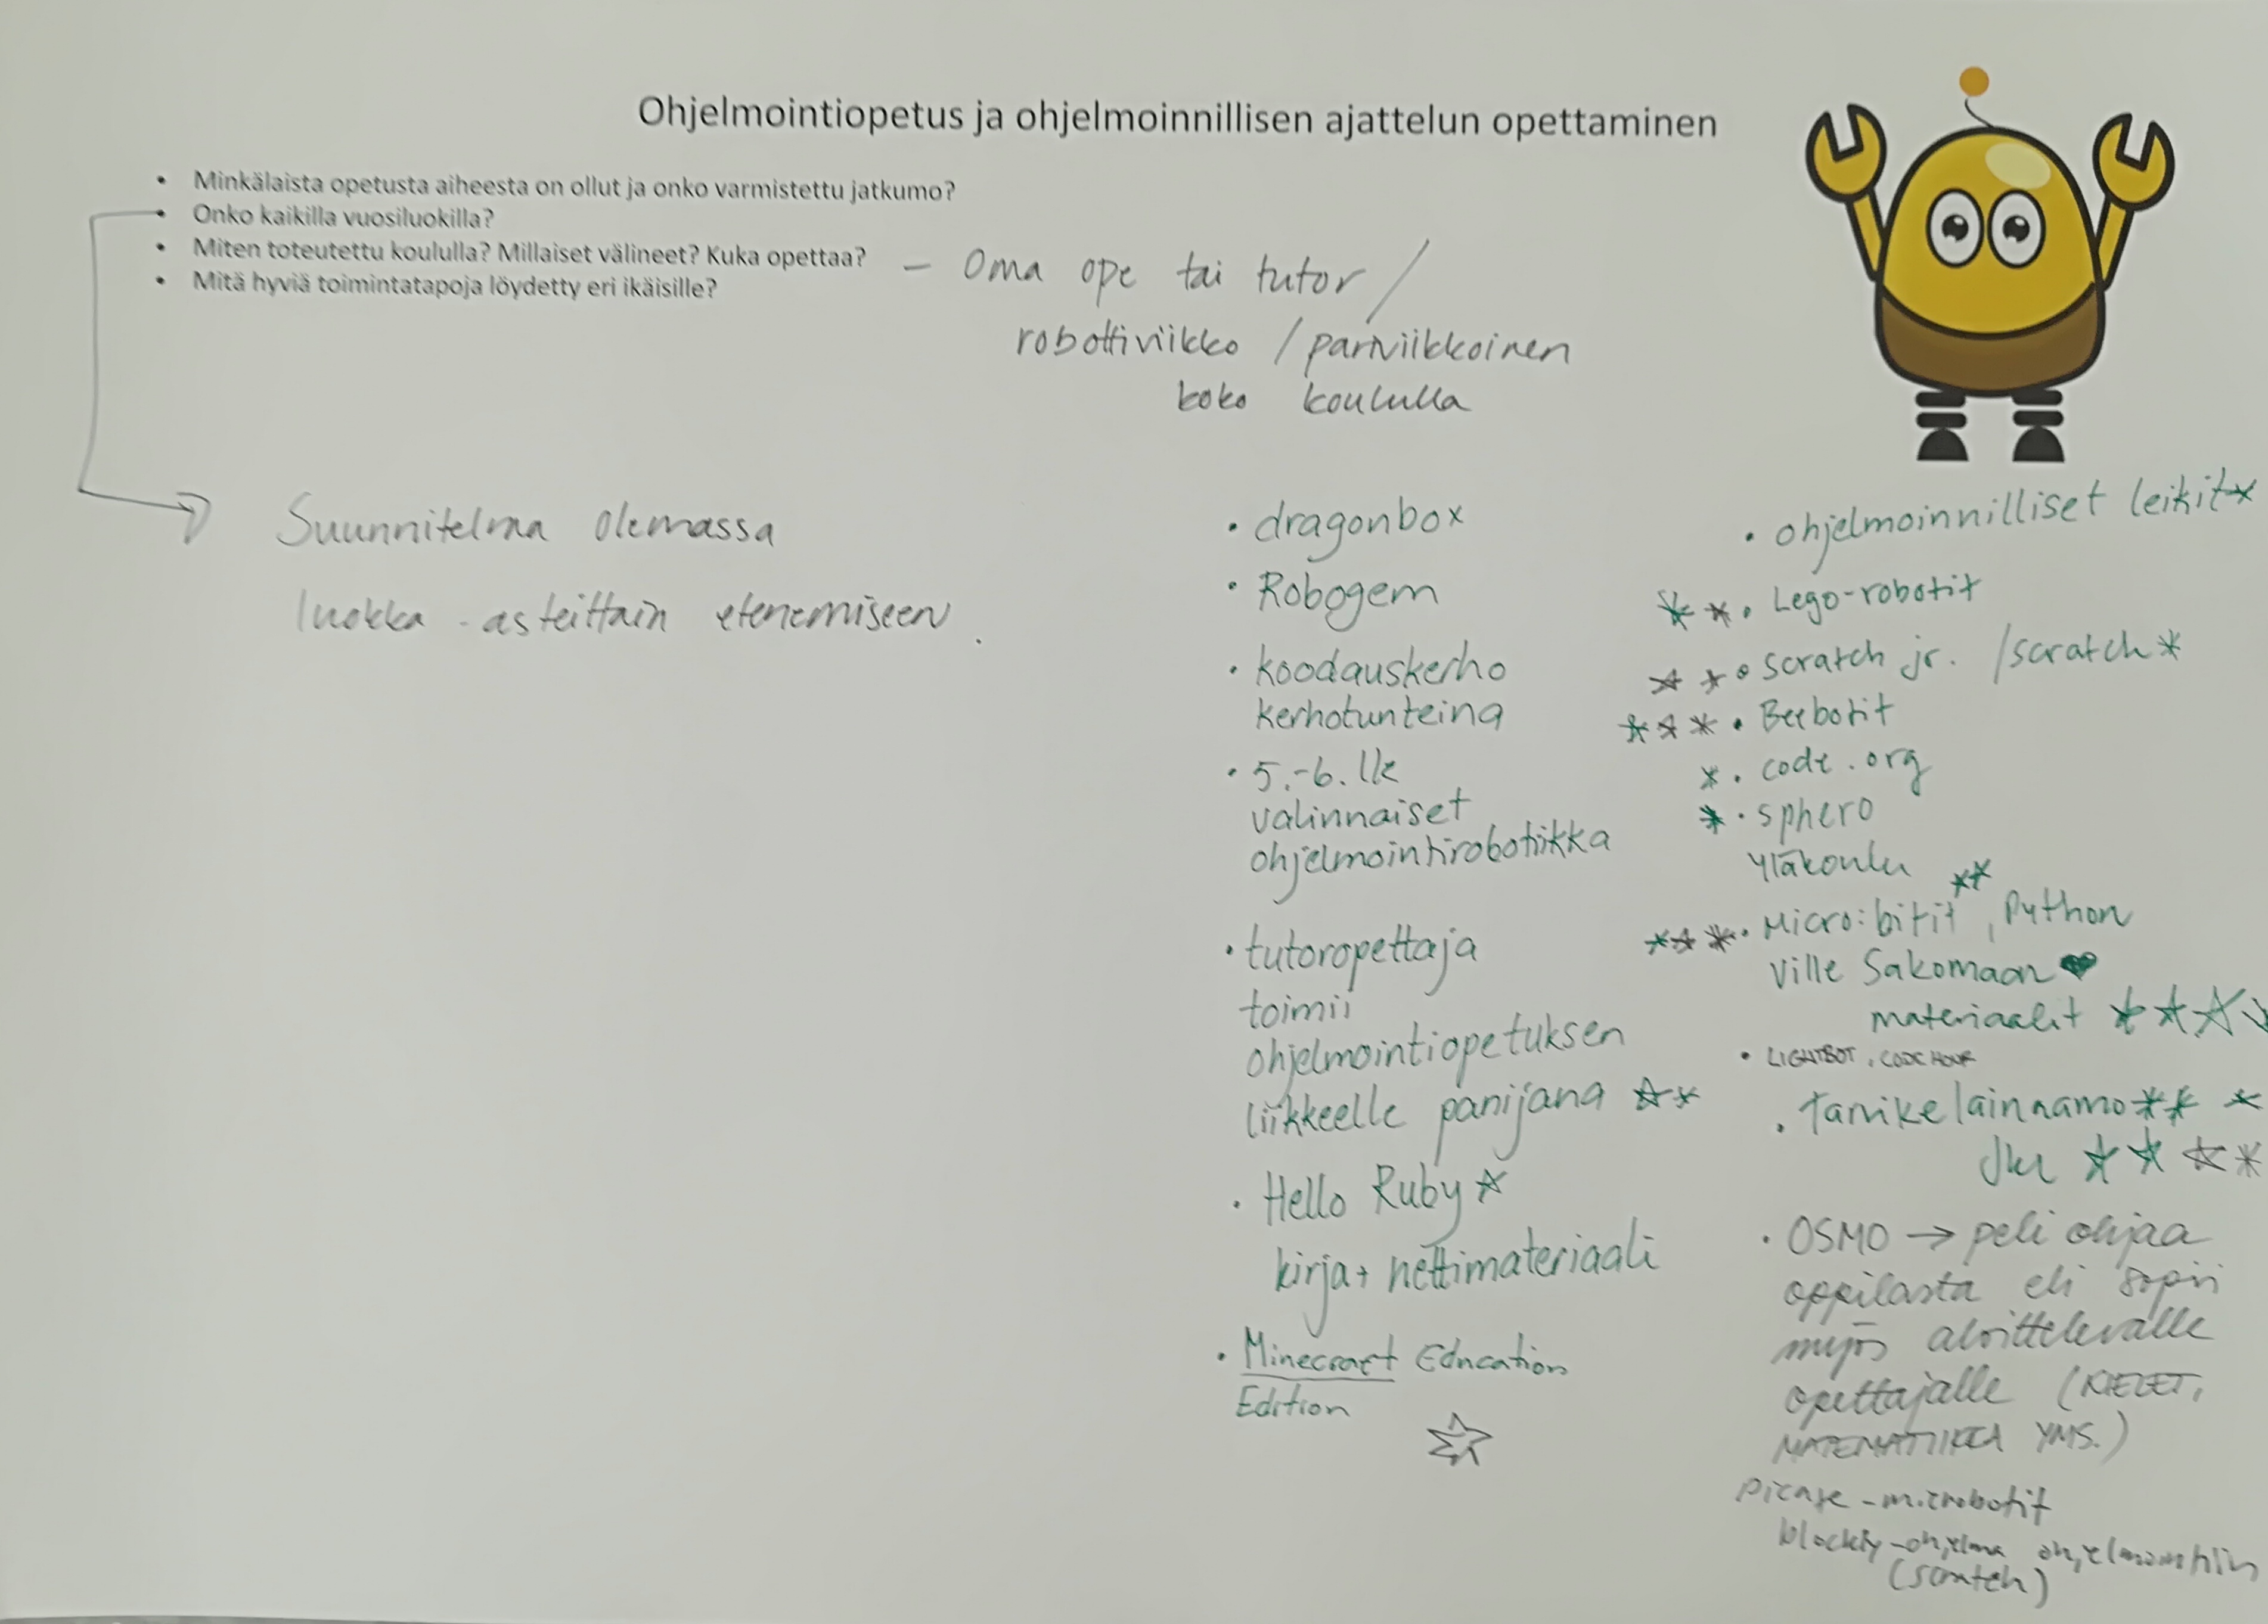 Ohjelmointiopetus ja ohjelmoinnillisen ajattelun opettaminen
• Minkälaista opetusta aiheesta on ollut ja onko varmistettu jatkumo?
• Onko kaikilla vuosiluokilla?
• Miten toteutettu koululla? Millaiset välineet? Kuka opettaa?
• Mitä hyviä toimintatapoja löydetty eri ikäisille?
– Oma ope tai tutor /
robottiviikko / pariviikkoinen
koko koululla
Suunnitelma olemassa
luokka-asteittain etenemiseen.
• dragonbox
• Robogem
• koodauskerho
kerhotunteina
• 5.-6. lk
valinnaiset
ohjelmointirobotiikka
• tutoropettaja
toimii
ohjelmointiopetuksen
liikkeelle panijana
• Hello Ruby
kirja + nettimateriaali
• Minecraft Education
Edition
• ohjelmoinnilliset leikit
• Lego-robotit
• Scratch jr. /scratch
• Beebotit
• code.org
• sphero
Yläkoulu
• Micro:bitit, Python
Ville Sakomaan
materiaalit
• LIGHTBOT, CODE HOUR
• Tarvikelainnamo
Jkl
• OSMO → peli ohjaa
oppilasta eli sopii
myös aloittelevalle
opettajalle (KIELET,
MATEMATIIKKA YMS.)
-microbotit
blockly-ohjelma ohjelmointiin
(scratch)